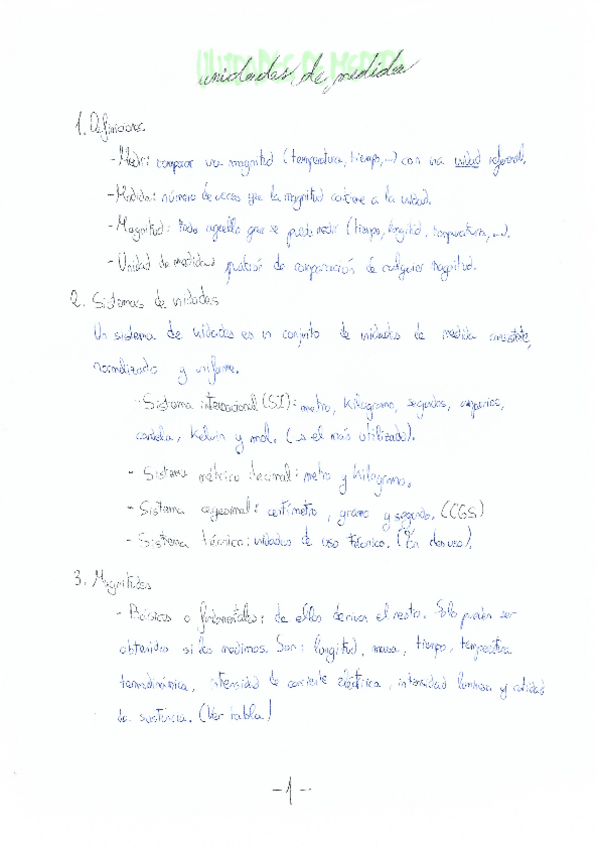 UNIDADES DE MEDIDA
unidades de medida
1. Definiciones
- Medir: comparar una magnitud (temperatura, tiempo,...) con una unidad referencial.
- Medida: número de veces que la magnitud contiene a la unidad.
- Magnitud: todo aquello que se puede medir (tiempo, longitud, temperatura,...).
- Unidad de medida: patrón de comparación de cualquier magnitud.
2. Sistemas de unidades
Un sistema de unidades es un conjunto de unidades de medida consistente,
normalizado y uniforme.
- Sistema internacional (SI): metro, kilogramo, segundos, amperios,
candela, Kelvin y mol. (es el más utilizado).
- Sistema métrico decimal: metro y kilogramo.
- Sistema cegesimal: centímetro, gramo y segundo. (CGS)
- Sistema técnico: unidades de uso técnico. (En desuso).
3. Magnitudes
- Básicas o fundamentales: de ellas derivan el resto. Solo pueden ser
obtenidas si las medimos. Son: longitud, masa, tiempo, temperatura
termodinámica, intensidad de corriente eléctrica, intensidad luminosa y cantidad
de sustancia. (Ver tabla)
- 1 -